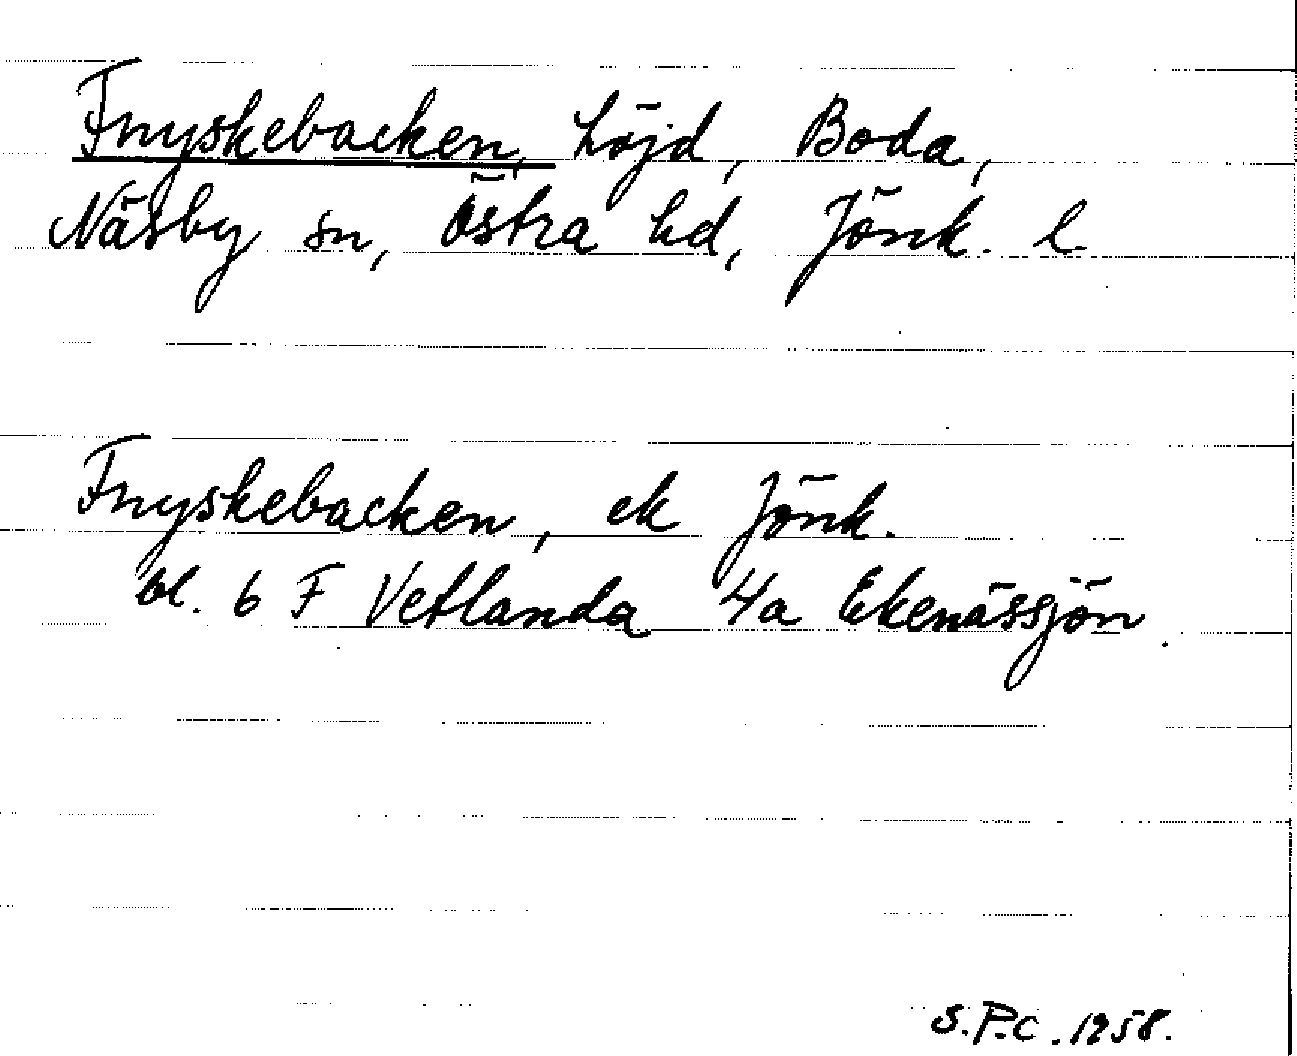 Fnyskebacken, höjd, Boda,
Näsby sn, Östra hd, Jönk. l.
Fnyskebacken, ek Jönk.
bl. 6 F Vetlanda 4a Ekenässjön.
S.P.C. 1958.